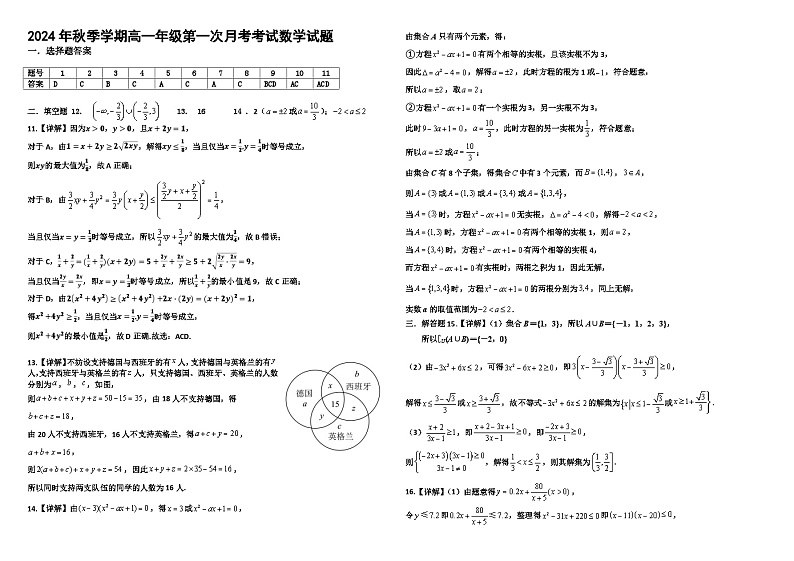 2024 年秋季学期高一年级第一次月考考试数学试题
一．选择题答案
题号 1 2 3 4 5 6 7 8 9 10 11
答案 D C B C A C A C BCD AC ACD
二．填空题 12. (-∞,-2/3)∪(-2/3,3] 13. 16 14．2（a=±2或a=10/3）；-2<a≤2
11.【详解】因为x>0，y>0，且x+2y=1，
对于A，由1=x+2y≥2√2xy，解得xy≤1/8，当且仅当x=1/2,y=1/4时等号成立，
则xy的最大值为1/8，故A正确；
对于B，由3/2xy+3/4y²=3/2y(x+y/2)≤((3/2y+x+y/2)/2)²=1/4，
当且仅当x=y=1/3时等号成立，所以3/2xy+3/4y²的最大值为1/4，故B错误；
对于C，1/x+2/y=(1/x+2/y)(x+2y)=5+2y/x+2x/y≥5+2√(2y/x·2x/y)=9，
当且仅当2y/x=2x/y，即x=y=1/3时等号成立，所以1/x+2/y的最小值是9，故C正确；
对于D，由2(x²+4y²)≥(x²+4y²)+2x·(2y)=(x+2y)²=1，
得x²+4y²≥1/2，当且仅当x=1/2,y=1/4时等号成立，
则x²+4y²的最小值是1/2，故D正确.故选：ACD.
13.【详解】不妨设支持德国与西班牙的有x人，支持德国与英格兰的有y
人，支持西班牙与英格兰的有z人，只支持德国、西班牙、英格兰的人数
分别为a，b，c，如图，
则a+b+c+x+y+z=50-15=35，由18人不支持德国，得
b+c+z=18，
由20人不支持西班牙，16人不支持英格兰，得a+c+y=20，
a+b+x=16，
则2(a+b+c)+x+y+z=54，因此x+y+z=2×35-54=16，
所以同时支持两支队伍的同学的人数为16人.
德国
a
x
b
西班牙
15
y
z
c
英格兰
14.【详解】由(x-3)(x²-ax+1)=0，得x=3或x²-ax+1=0，
由集合A只有两个元素，得：
①方程x²-ax+1=0有两个相等的实根，且该实根不为3，
因此Δ=a²-4=0，解得a=±2，此时方程的根为1或-1，符合题意，
所以a=±2，取a=2；
②方程x²-ax+1=0有一个实根为3，另一实根不为3，
此时9-3a+1=0，a=10/3，此时方程的另一实根为1/3，符合题意；
所以a=±2或a=10/3；
由集合C有8个子集，得集合C中有3个元素，而B={1,4}，3∈A，
则A={3}或A={1,3}或A={3,4}或A={1,3,4}，
当A={3}时，方程x²-ax+1=0无实根，Δ=a²-4<0，解得-2<a<2，
当A={1,3}时，方程x²-ax+1=0有两个相等的实根1，则a=2，
当A={3,4}时，方程x²-ax+1=0有两个相等的实根4，
而方程x²-ax+1=0有实根时，两根之积为1，因此无解，
当A={1,3,4}时，方程x²-ax+1=0的两根分别为3,4，同上无解，
实数a的取值范围为-2<a≤2．
三．解答题15.【详解】（1）集合B={1，3}，所以A∪B={-1，1，2，3}，
所以∁U(A∪B)={-2，0}
（2）由-3x²+6x≤2，可得3x²-6x+2≥0，即3(x-(3-√3)/3)(x-(3+√3)/3)≥0，
解得x≤(3-√3)/3或x≥(3+√3)/3，故不等式-3x²+6x≤2的解集为{x|x≤1-√3/3或x≥1+√3/3}．
（3）(x+2)/(3x-1)≥1，即(x+2-3x+1)/(3x-1)≥0，即(-2x+3)/(3x-1)≥0，
则{(-2x+3)(3x-1)≥0 3x-1≠0，解得1/3<x≤3/2，则其解集为(1/3,3/2]．
16.【详解】（1）由题意得y=0.2x+80/(x+5)(x>0)，
令y≤7.2即0.2x+80/(x+5)≤7.2，整理得x²-31x+220≤0即(x-11)(x-20)≤0，